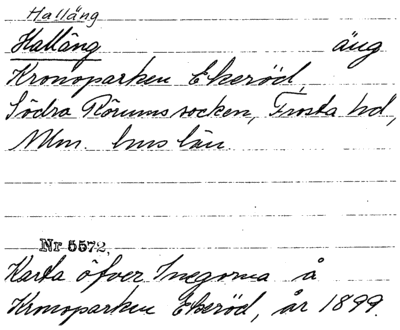 Halläng
Halläng äng
Kronoparken Ekeröd,
Södra Rörums socken, Frosta hd,
Mlm. hus län.
Nr 5572.
Karta öfver Inegorna å
Kronoparken Ekeröd, år 1899.